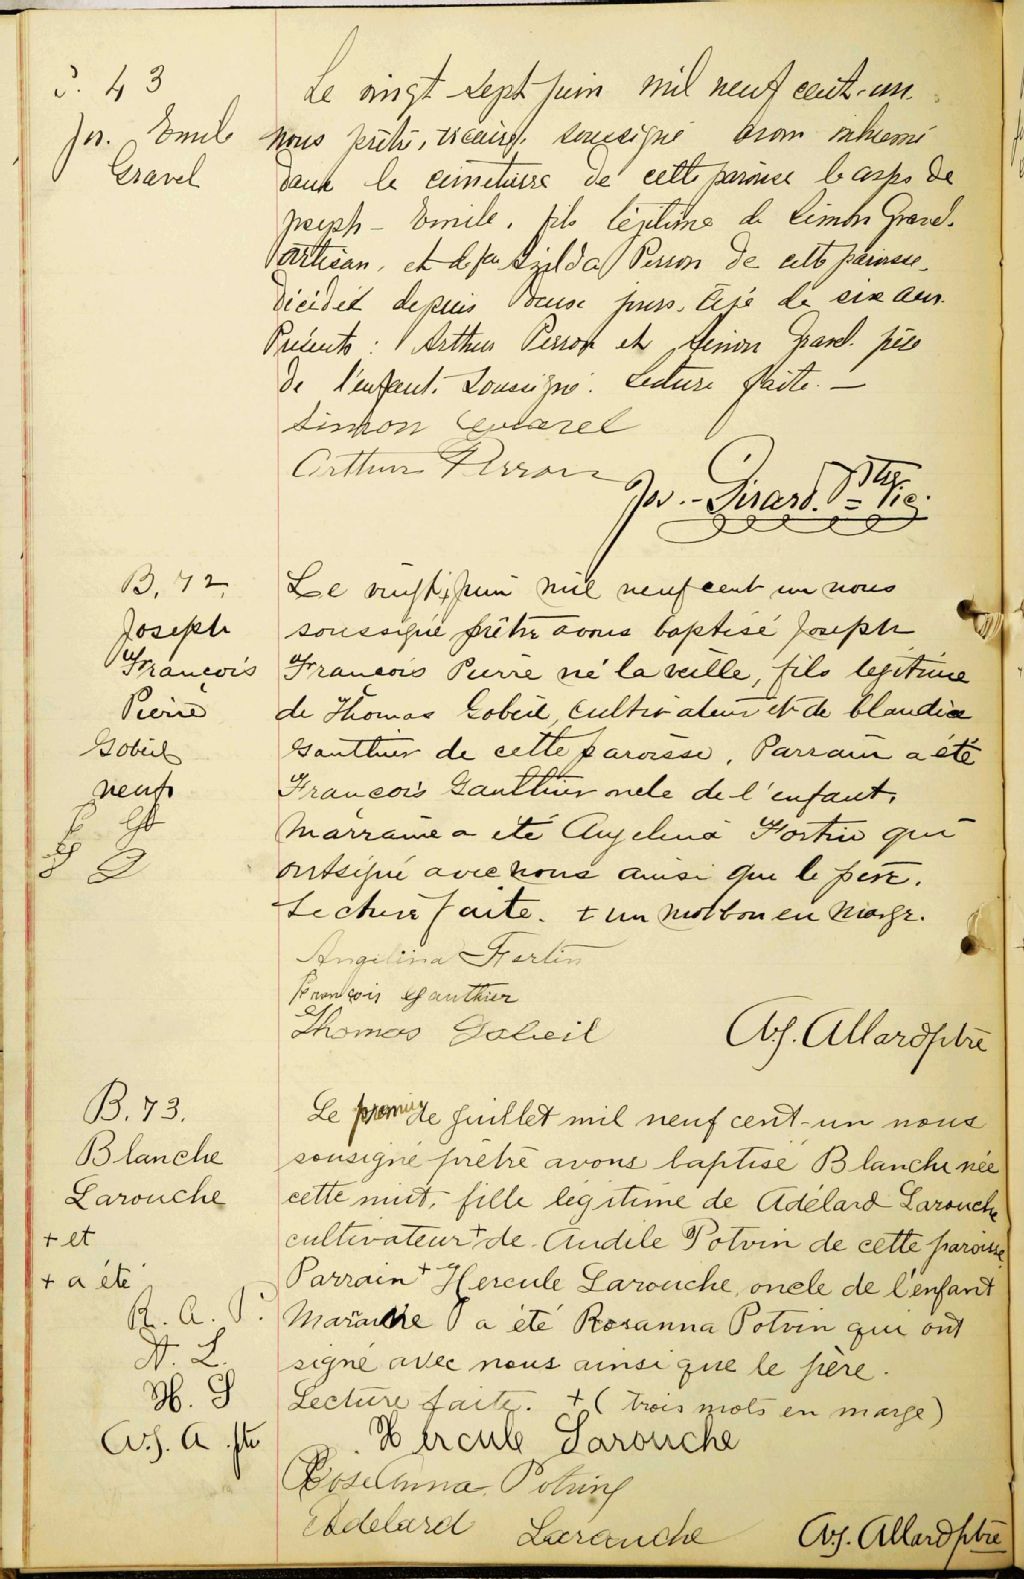 S. 43
Jos. Emile
Gravel
Le vingt-sept juin mil neuf cent-un
nous prêtre, vicaire, soussigné avons inhumé
dans le cimetière de cette paroisse le corps de
Joseph-Emile, fils légitime de Simon Gravel,
artisan, et de Exilda Perron de cette paroisse,
décédé depuis deux jours, âgé de six ans.
Présents: Arthur Perron et Simon Gravel père
de l'enfant. soussigné. Lecture faite. —
Simon Gravel
Arthur Perron
Jos. Girard. Ptre = Vic.
B. 72
Joseph
François
Pierre
Gobeil
neuf
Le vingt juin mil neuf cent un nous
soussigné prêtre avons baptisé Joseph
François Pierre né la veille, fils légitime
de Thomas Gobeil, cultivateur et de Claudia
Gauthier de cette paroisse. Parrain a été
François Gauthier oncle de l'enfant.
Marraine a été Angelina Fortin qui
ont signé avec nous ainsi que le père.
Lecture faite. + un mot bon en marge.
Angelina Fortin
François Gauthier
Thomas Gobeil
A.J. Allard ptre
B. 73.
Blanche
Larouche
+ et
+ a été
R. A. P.
A. L.
H. L
A.J. A ptr
Le premier de Juillet mil neuf cent-un nous
sousigné prêtre avons baptisé Blanche née
cette nuit, fille légitime de Adélard Larouche
cultivateur + de Audile Potvin de cette paroisse.
Parrain + Hercule Larouche, oncle de l'enfant
Marraine a été Rosanna Potvin qui ont
signé avec nous ainsi que le père.
Lecture faite. + (trois mots en marge)
Hercule Larouche
Rose Anna Potvin
Adelard Larouche
A.J. Allard ptre